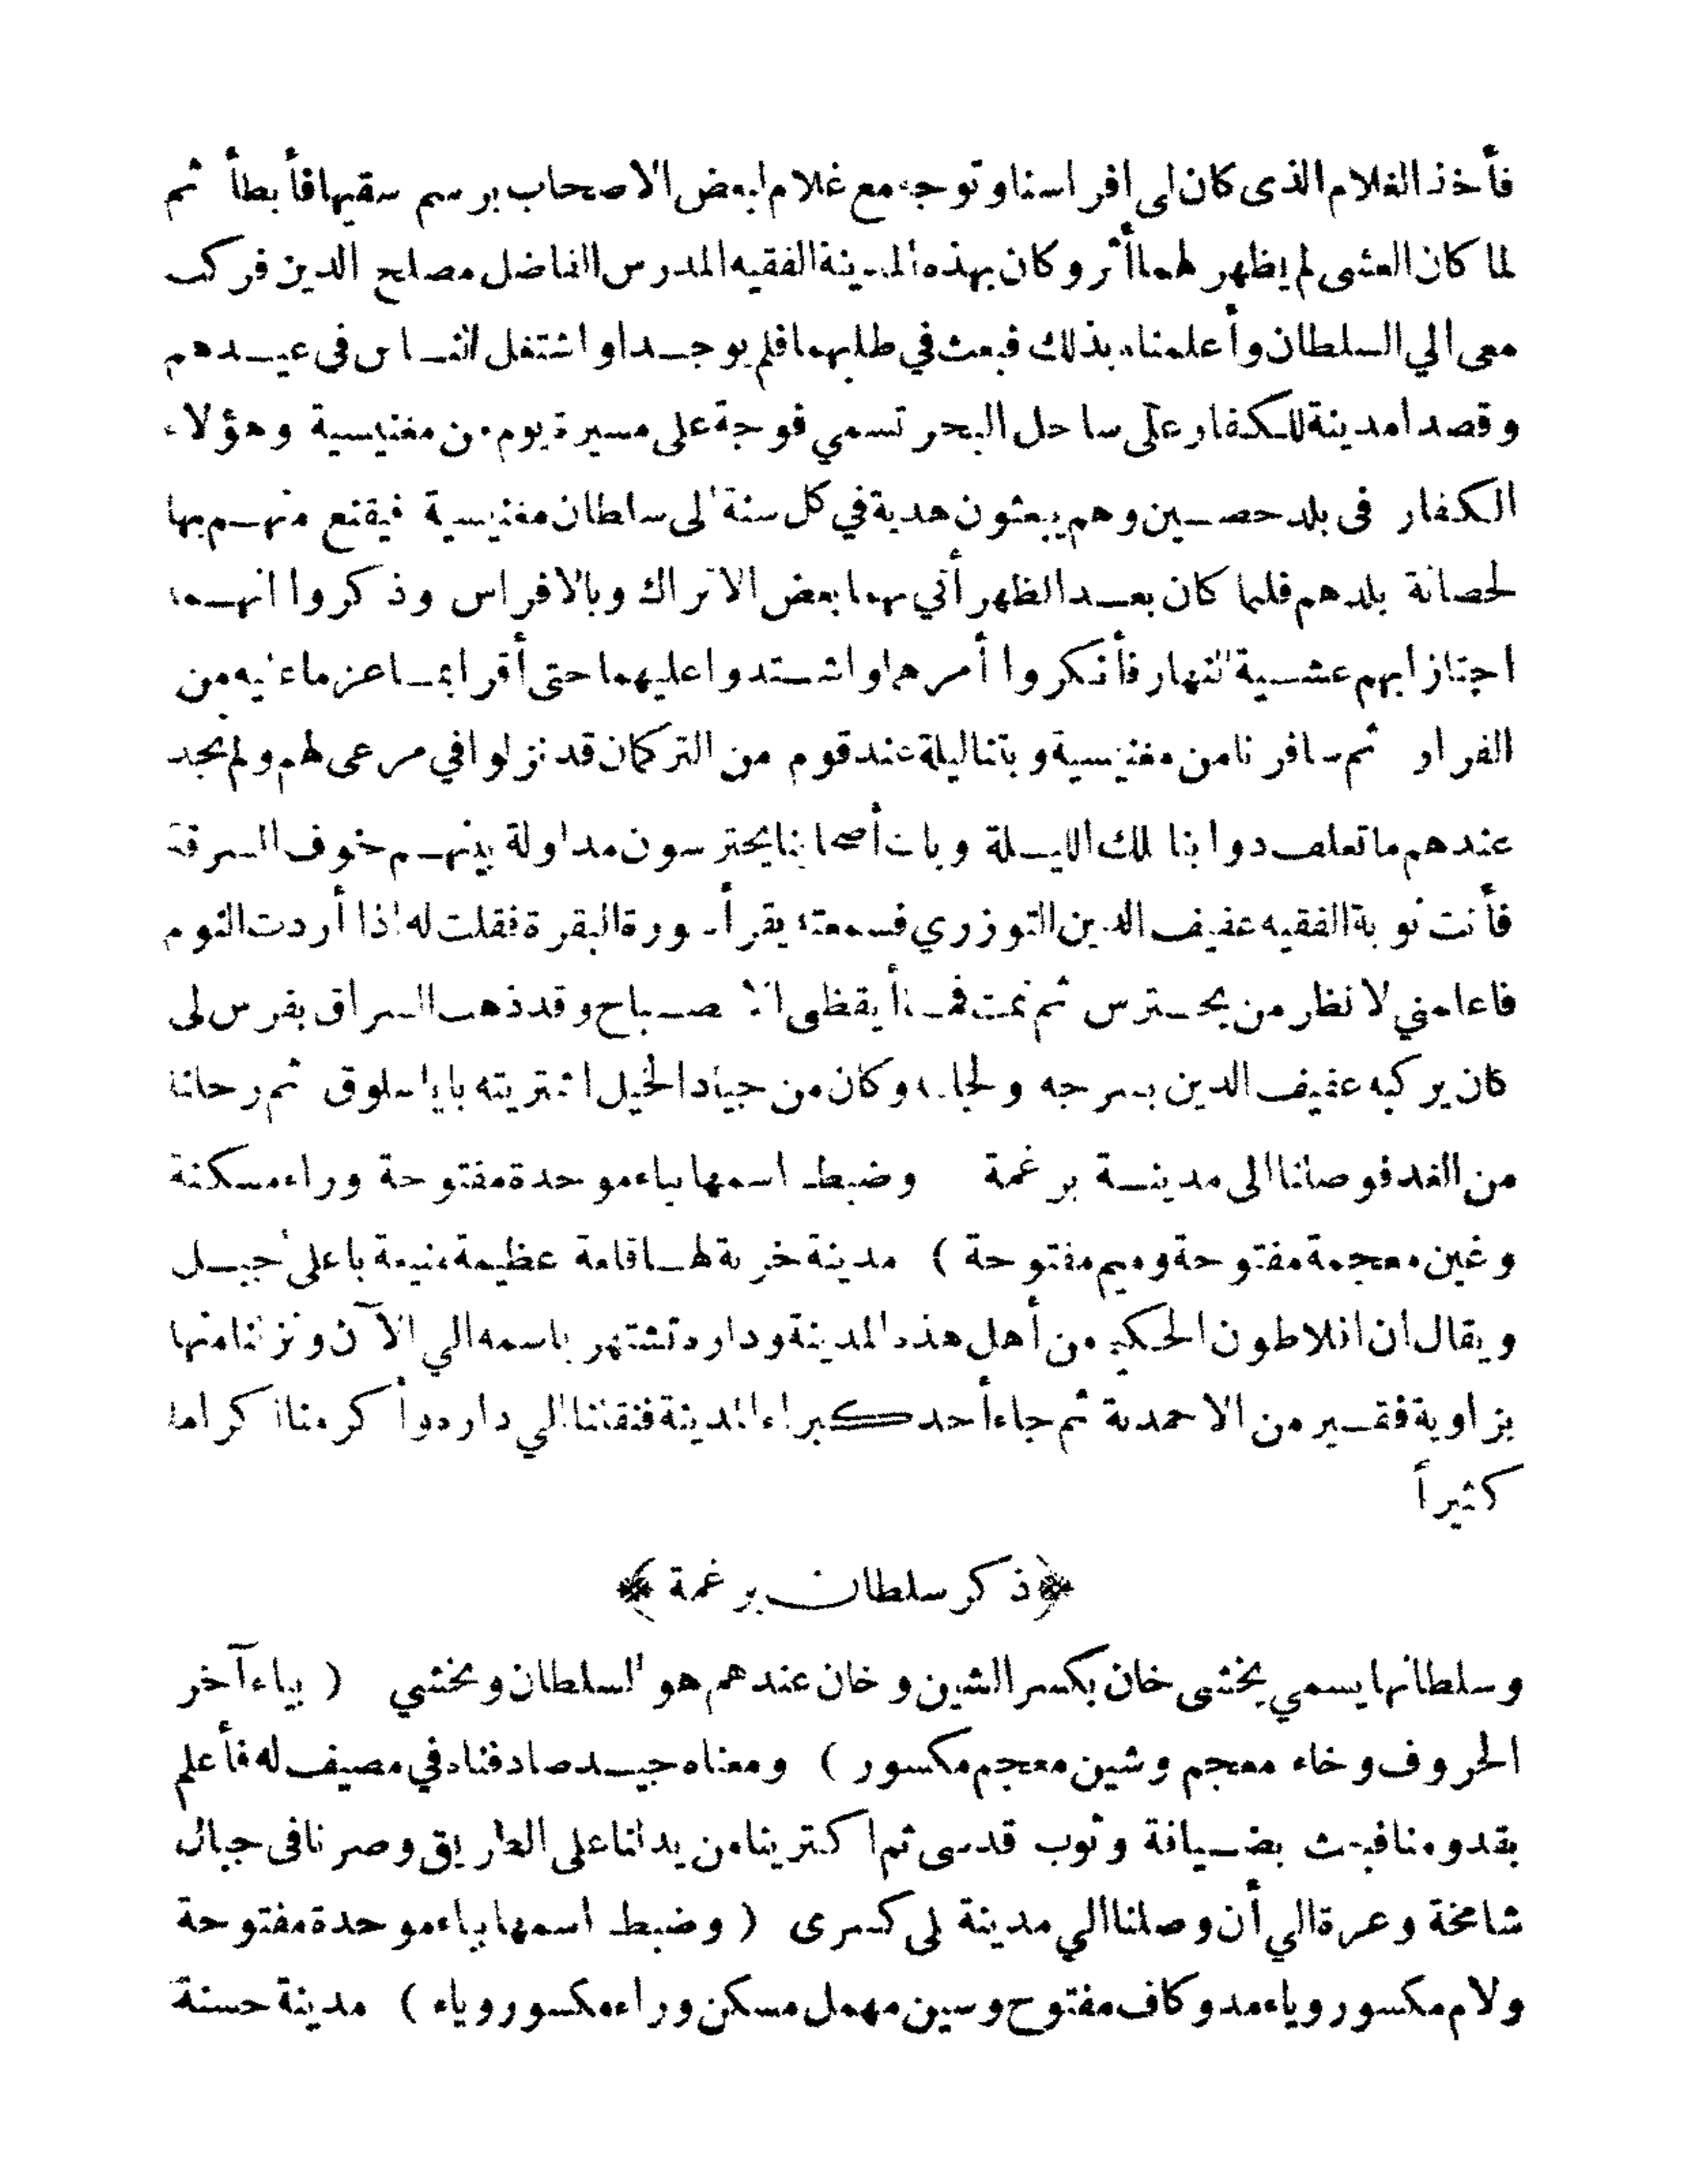 فأخذ الغلام الذى كان لى افراسنا وتوجه مع غلام لبعض الاصحاب برسم سقيها فأبطأ ثم
لما كان العشى لم يظهر لهما أثر وكان بهذه المدينة الفقيه المدرس الفاضل مصلح الدين فركب
معى الي السلطان وأعلمناه بذلك فبعث في طلبهما فلم يوجدا واشتغل الناس فى عيدهم
وقصدا مدينة للكفار على ساحل البحر تسمي فوجة على مسيرة يوم من مغنيسية وهؤلاء
الكفار فى بلد حصين وهم يبعثون هدية في كل سنة الى سلطان مغنيسية فيقنع منهم بها
لحصانة بلدهم فلما كان بعد الظهر أتي بهما بعض الاتراك وبالافراس وذكروا انهما
اجتازا بهم عشية النهار فأنكروا أمرهما واشتدوا عليهما حتى أقرا بما عزما عليه من
الفرار ثم سافرنا من مغنيسية وبتنا ليلة عند قوم من التركمان قد نزلوا في مرعى لهم ولم نجد
عندهم ما نعلف دوابنا تلك الليلة وبات أصحابنا يحترسون مداولة بينهم خوف السرقة
فأتت نوبة الفقيه عفيف الدين التوزري فسمعته يقرأ سورة البقرة فقلت له اذا أردت النوم
فاعلمني لانظر من يحترس ثم نمت فما أيقظنى الا الصباح وقد ذهب السراق بفرس لى
كان يركبه عفيف الدين بسرجه ولجامه وكان من جياد الخيل اشتريته بايا سلوق ثم رحلنا
من الغد فوصلنا الى مدينة برغمة وضبط اسمها بباء موحدة مفتوحة وراء مسكنة
وغين معجمة مفتوحة وميم مفتوحة ) مدينة خربة لها قلعة عظيمة منيعة باعلى جبل
ويقال ان افلاطون الحكيم من أهل هذه المدينة وداره تشتهر باسمه الي الآن ونزلنا منها
بزاوية فقير من الاحمدية ثم جاء أحد كبراء المدينة فنقلنا الي داره وأكرمنا اكراما
كثيرأ
﴿ ذكر سلطان برغمة ﴾
وسلطانها يسمي يخشى خان بكسر الشين وخان عندهم هو السلطان ويخشي ( بياء آخر
الحروف وخاء معجم وشين معجم مكسور ) ومعناه جيد صادفناه في مصيف له فأعلم
بقدومنا فبعث بضيافة وثوب قدسى ثم اكترينا من يدلنا على الطريق وصرنا فى جبال
شامخة وعرة الي أن وصلنا الي مدينة بلى كسرى ( وضبط اسمها بباء موحدة مفتوحة
ولام مكسور وياء مد وكاف مفتوح وسين مهمل مسكن وراء مكسور وياء ) مدينة حسنة